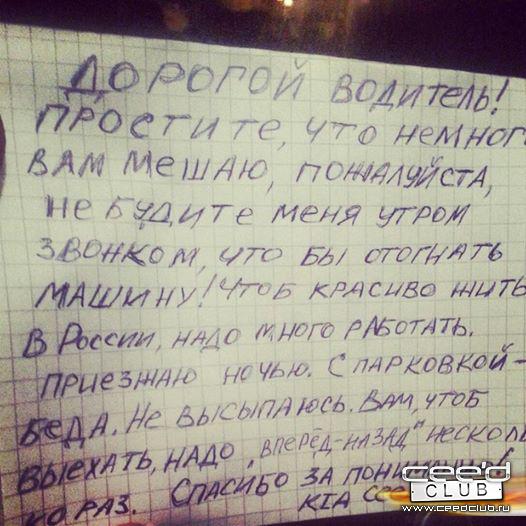 ДОРОГОЙ ВОДИТЕЛЬ!
ПРОСТИТЕ, ЧТО НЕМНОГ
ВАМ МЕШАЮ, ПОЖАЛУЙСТА,
НЕ БУДИТЕ МЕНЯ УТРОМ
ЗВОНКОМ, ЧТО БЫ ОТОГНАТЬ
МАШИНУ! ЧТОБ КРАСИВО ЖИТЬ
В РОССИИ, НАДО МНОГО РАБОТАТЬ.
ПРИЕЗЖАЮ НОЧЬЮ. С ПАРКОВКОЙ-
БЕДА. НЕ ВЫСЫПАЮСЬ. ВАМ, ЧТОБ
ВЫЕХАТЬ, НАДО „ВПЕРЁД-НАЗАД" НЕСКОЛЬ
КО РАЗ. СПАСИБО ЗА ПОНИМАНИЕ!
KIA CEE
cee'd
CLUB
www.ceedclub.ru